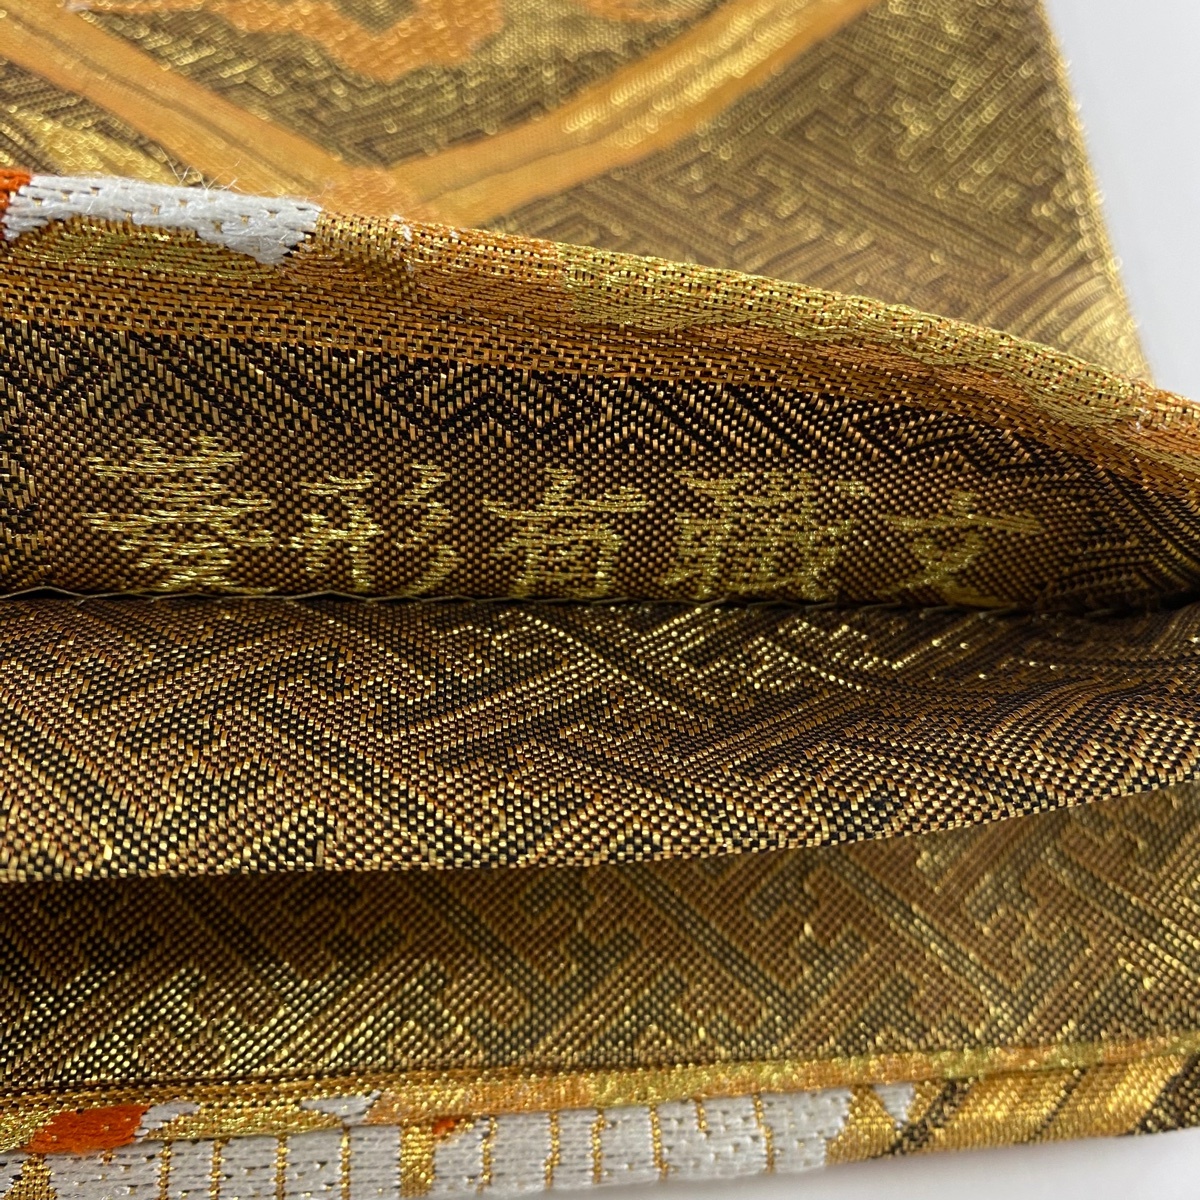 華彩有職文